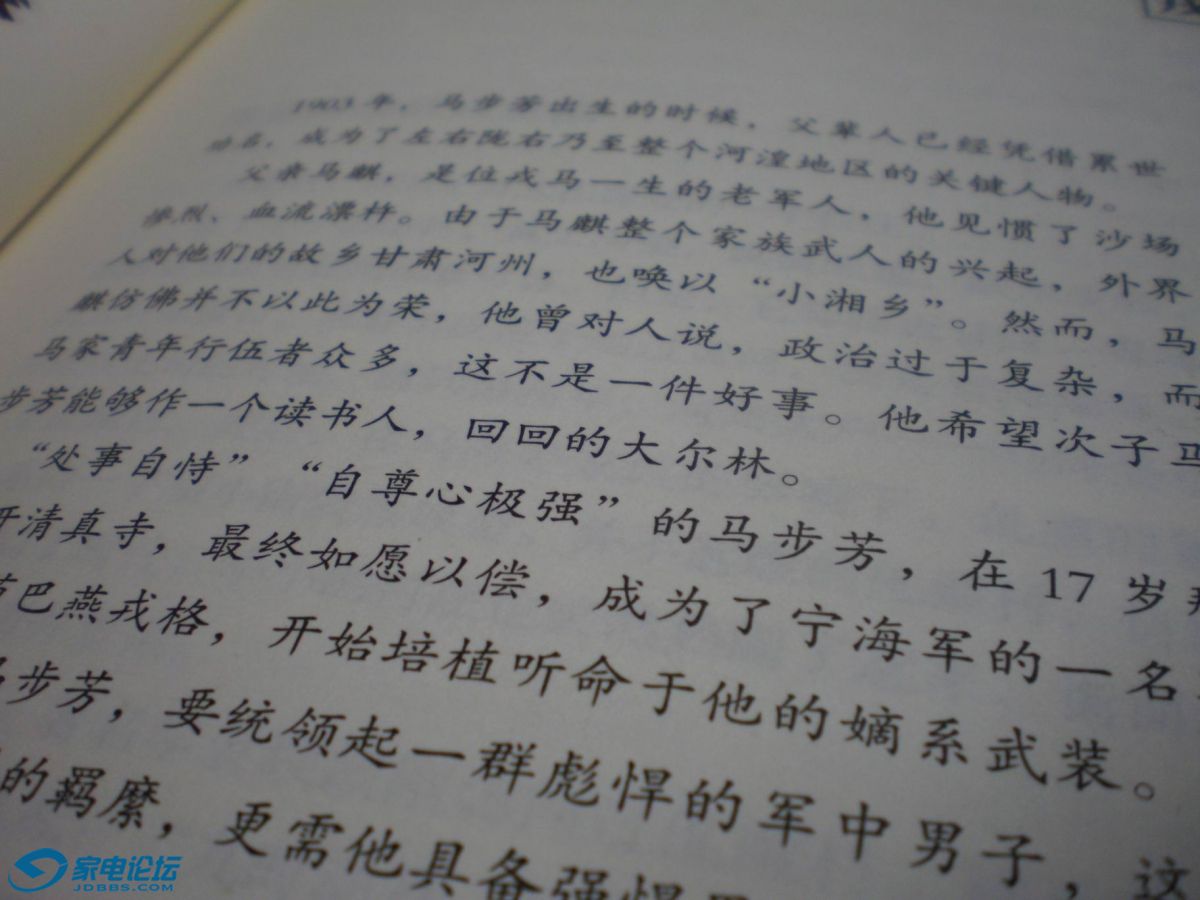 1903年，马步芳出生的时候，父辈人已经凭借累世
功名，成为了左右陇右乃至整个河湟地区的关键人物。
父亲马麒，是位戎马一生的老军人，他见惯了沙场
惨烈、血流漂杵。由于马麒整个家族武人的兴起，外界
人对他们的故乡甘肃河州，也唤以“小湘乡”。然而，马
麒仿佛并不以此为荣，他曾对人说，政治过于复杂，而
马家青年行伍者众多，这不是一件好事。他希望次子马
步芳能够作一个读书人，回回的大尔林。
“处事自恃”“自尊心极强”的马步芳，在17岁
开清真寺，最终如愿以偿，成为了宁海军的一名
巴燕戎格，开始培植听命于他的嫡系武装。
马步芳，要统领起一群彪悍的军中男子，这
的羁縻，更需他具备强悍
家电论坛
JDBBS.COM